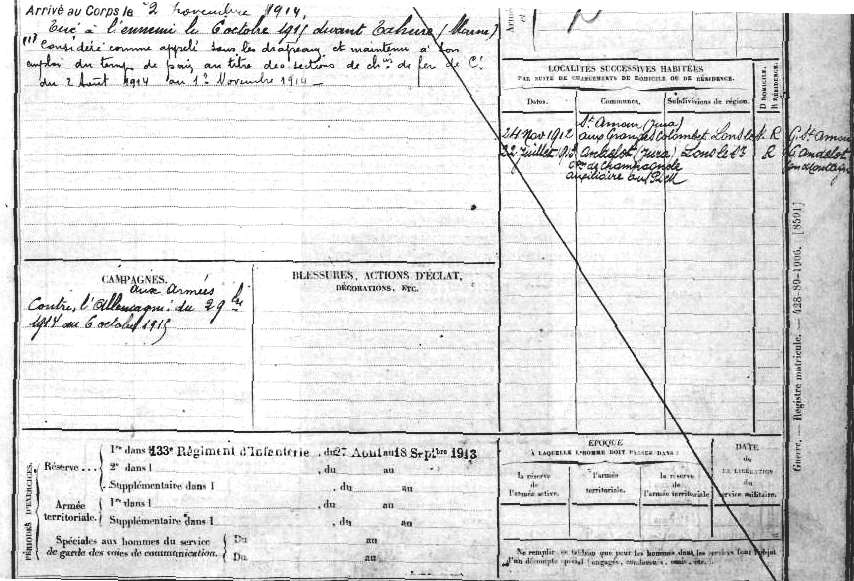 Arrivé au Corps le 2 Novembre 1914,
Tué à l'ennemi le 6 octobre 1915 devant Tahure (Marne)
(1) Considéré comme appelé sous les drapeaux et maintenu à son
emploi du temps de paix, au titre des sections de ch.ins de fer de C.e
du 2 Août 1914 au 1er Novembre 1914 —
CAMPAGNES.
aux armées
Contre l'Allemagne du 29
1914 au 6 octobre 1915
BLESSURES, ACTIONS D'ÉCLAT,
DÉCORATIONS, ETC.
LOCALITÉS SUCCESSIVES HABITÉES
PAR SUITE DE CHANGEMENTS DE DOMICILE OU DE RÉSIDENCE.
Dates. Communes. Subdivisions de région. D DOMICILE. R RÉSIDENCE.
St Amour (Jura)
24 Nov 1912 aux Granges Colombet Lons le S. R G. St Amour
22 Juillet 1913 Andelot (Jura) Lons le S R G Andelot
de Champagnole en Montagne
auxiliaire au PLM
PÉRIODES D'EXERCICES.
Réserve ...
1re dans l 133e Régiment d'Infanterie, du 27 Août au 18 Septbre 1913
2e dans l , du au
Supplémentaire dans l , du au
Armée territoriale.
1re dans l , du au
Supplémentaire dans l , du au
Spéciales aux hommes du service
de garde des voies de communication.
Du au
Du au
ÉPOQUE
À LAQUELLE L'HOMME DOIT PASSER DANS :
la réserve de l'armée active. l'armée territoriale. la réserve de l'armée territoriale.
DATE
de
LA LIBÉRATION
du
service militaire.
Ne remplir ce tableau que pour les hommes dont les services font l'objet
d'un décompte spécial (engagés, condamnés, omis, etc.).
Guerre. Registre matricule. — 428-89-1906. [8591]